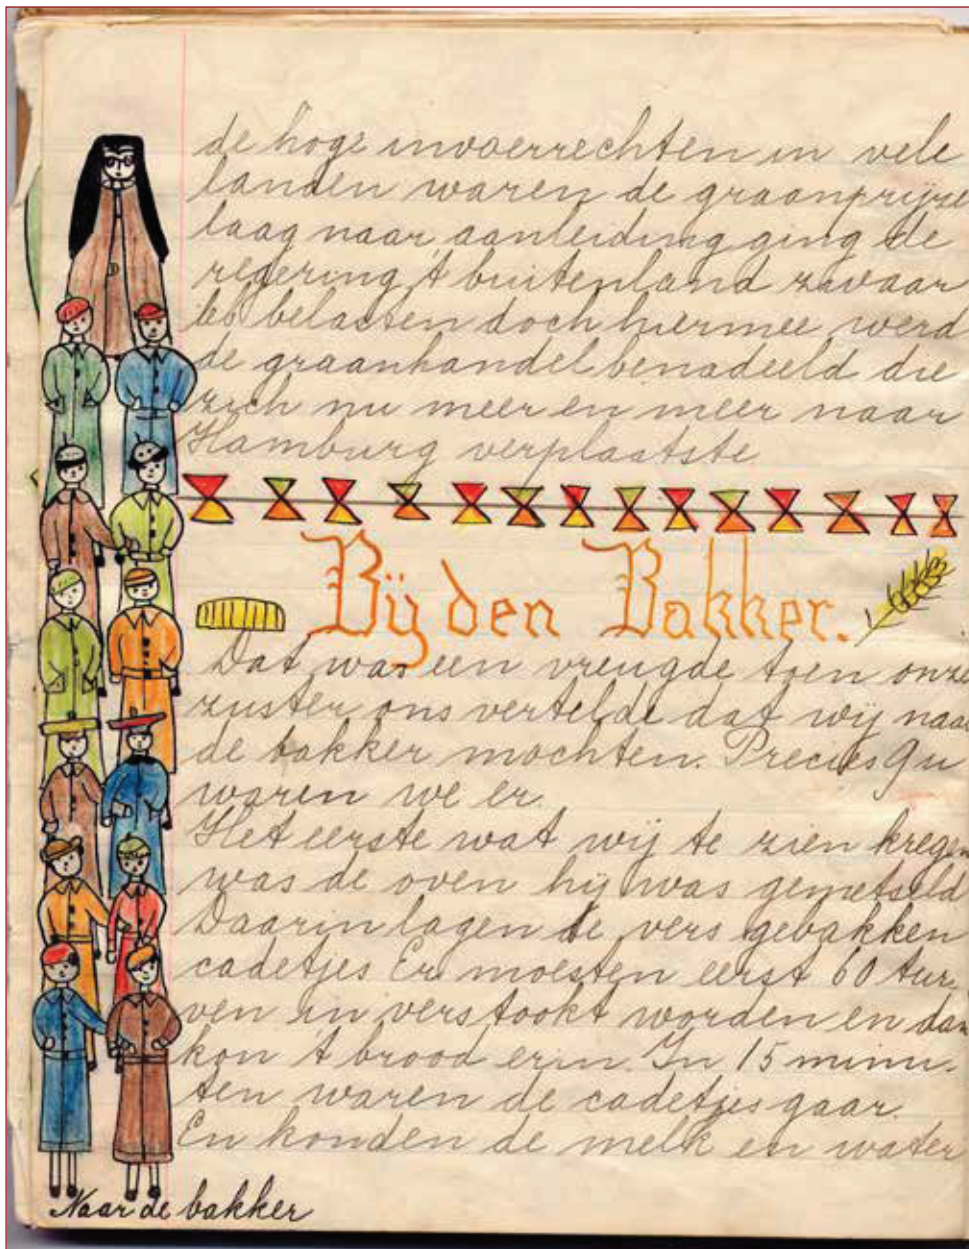 de hoge invoerrechten in vele
landen waren de graanprijze
laag naar aanleiding ging de
regering 't buitenland zwaar
belasten doch hiermee werd
de graanhandel benadeeld die
zich nu meer en meer naar
Hamburg verplaatste
Bij den Bakker.
Dat was een vreugde toen onze
zuster ons vertelde dat wij naar
de bakker mochten. Precies 9 u
waren we er.
Het eerste wat wij te zien kregen
was de oven hij was gemetseld
Daarin lagen de vers gebakken
cadetjes Er moesten eerst 60 tur-
ven in verstookt worden en dan
kon 't brood erin. In 15 minu-
ten waren de cadetjes gaar.
En konden de melk en water
Naar de bakker